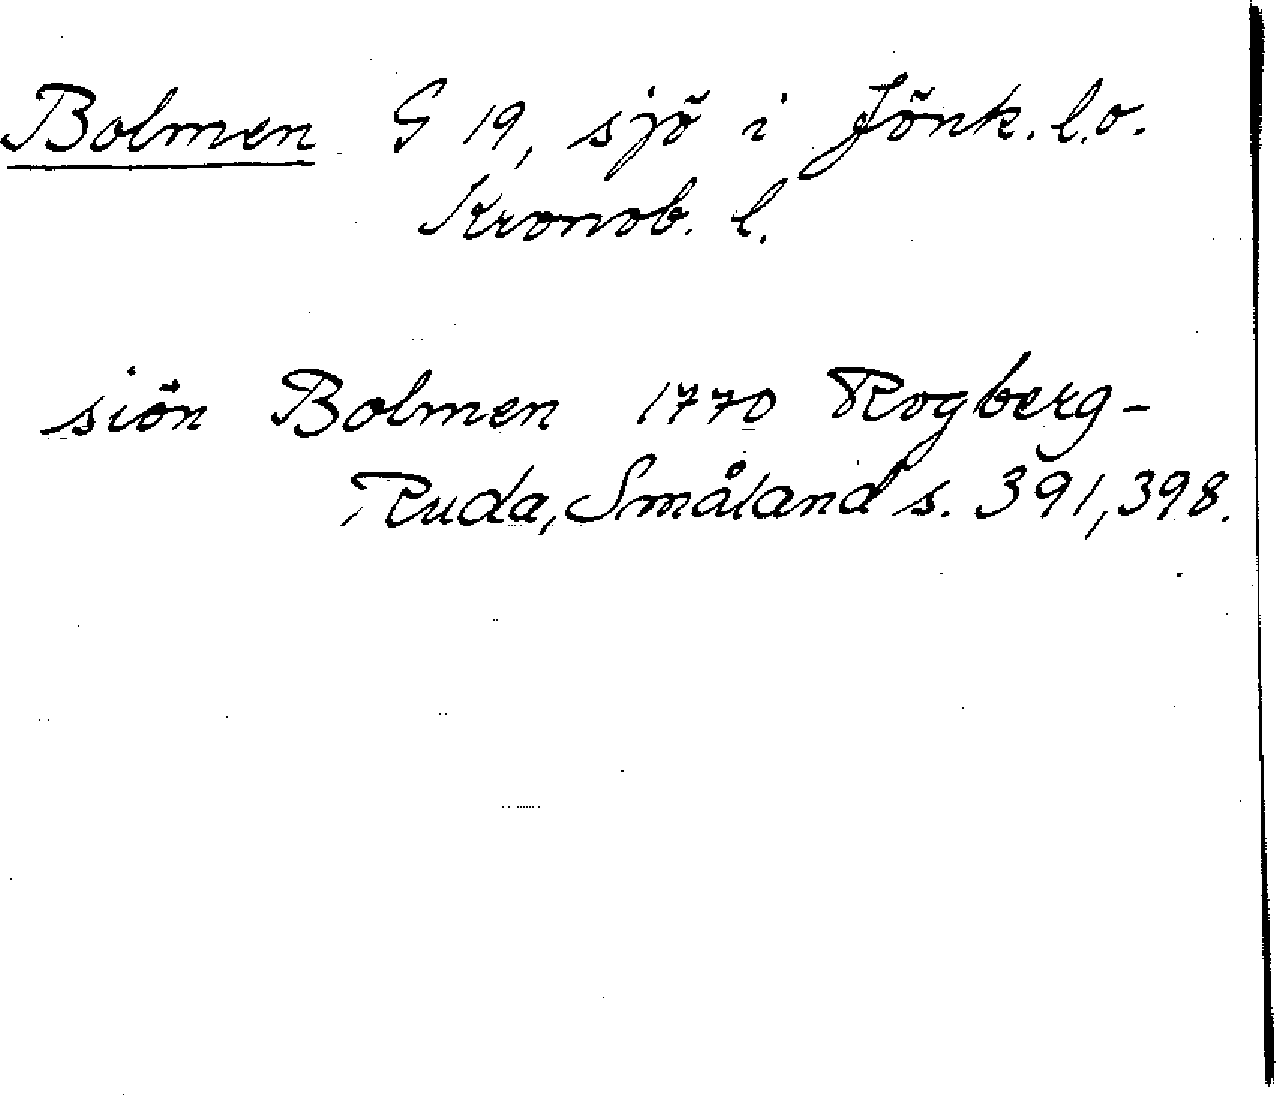 Bolmen G 19, sjö i Jönk. l. o.
Kronob. l.
siön Bolmen 1770 Rogberg-
Ruda, Småland s. 391, 398.